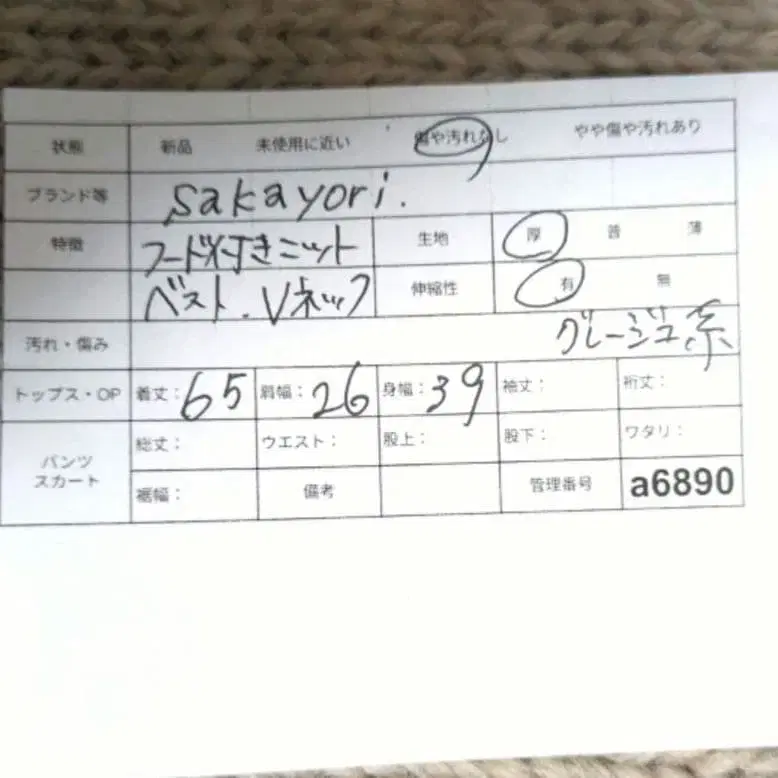 状態 新品 未使用に近い 傷や汚れなし やや傷や汚れあり
ブランド等 sakayori.
特徴 フード付きニット 生地 厚 普 薄
ベスト.Vネック 伸縮性 有 無
汚れ・傷み グレージュ系
トップス・OP 着丈:65 肩幅:26 身幅:39 袖丈: 裄丈:
パンツ スカート 総丈: ウエスト: 股上: 股下: ワタリ:
裾幅: 備考 管理番号 a6890